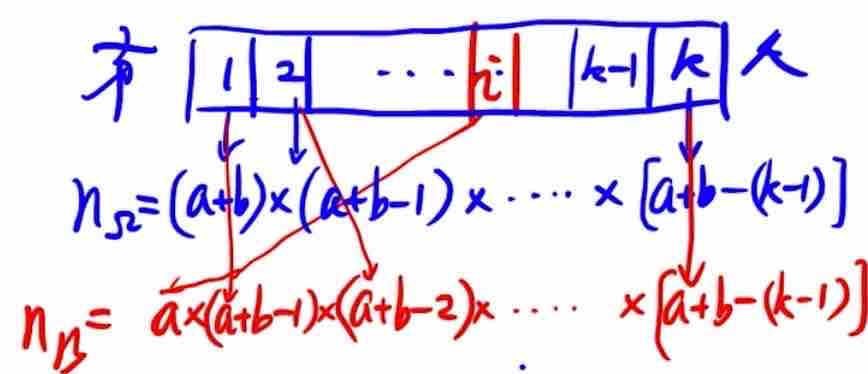 有 1 2 ... i k-1 k 人
n_Ω=(a+b)×(a+b-1)×....×[a+b-(k-1)]
n_B= a×(a+b-1)×(a+b-2)×....×[a+b-(k-1)]